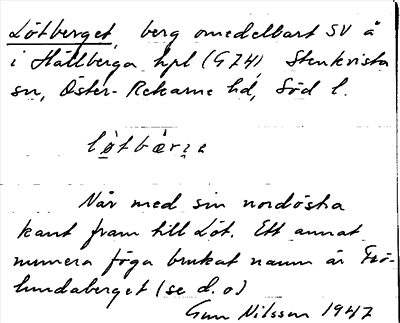 Lötberget, berg omedelbart SV å
i Hållberga hpl (G74) Stenkvista
sn, Öster-Rekarne hd, Söd l.
Når med sin nordöstra
kant fram till Löt. Ett annat
numera föga brukat namn är Frö-
lundaberget (se d.o)
Gun Nilsson 1947